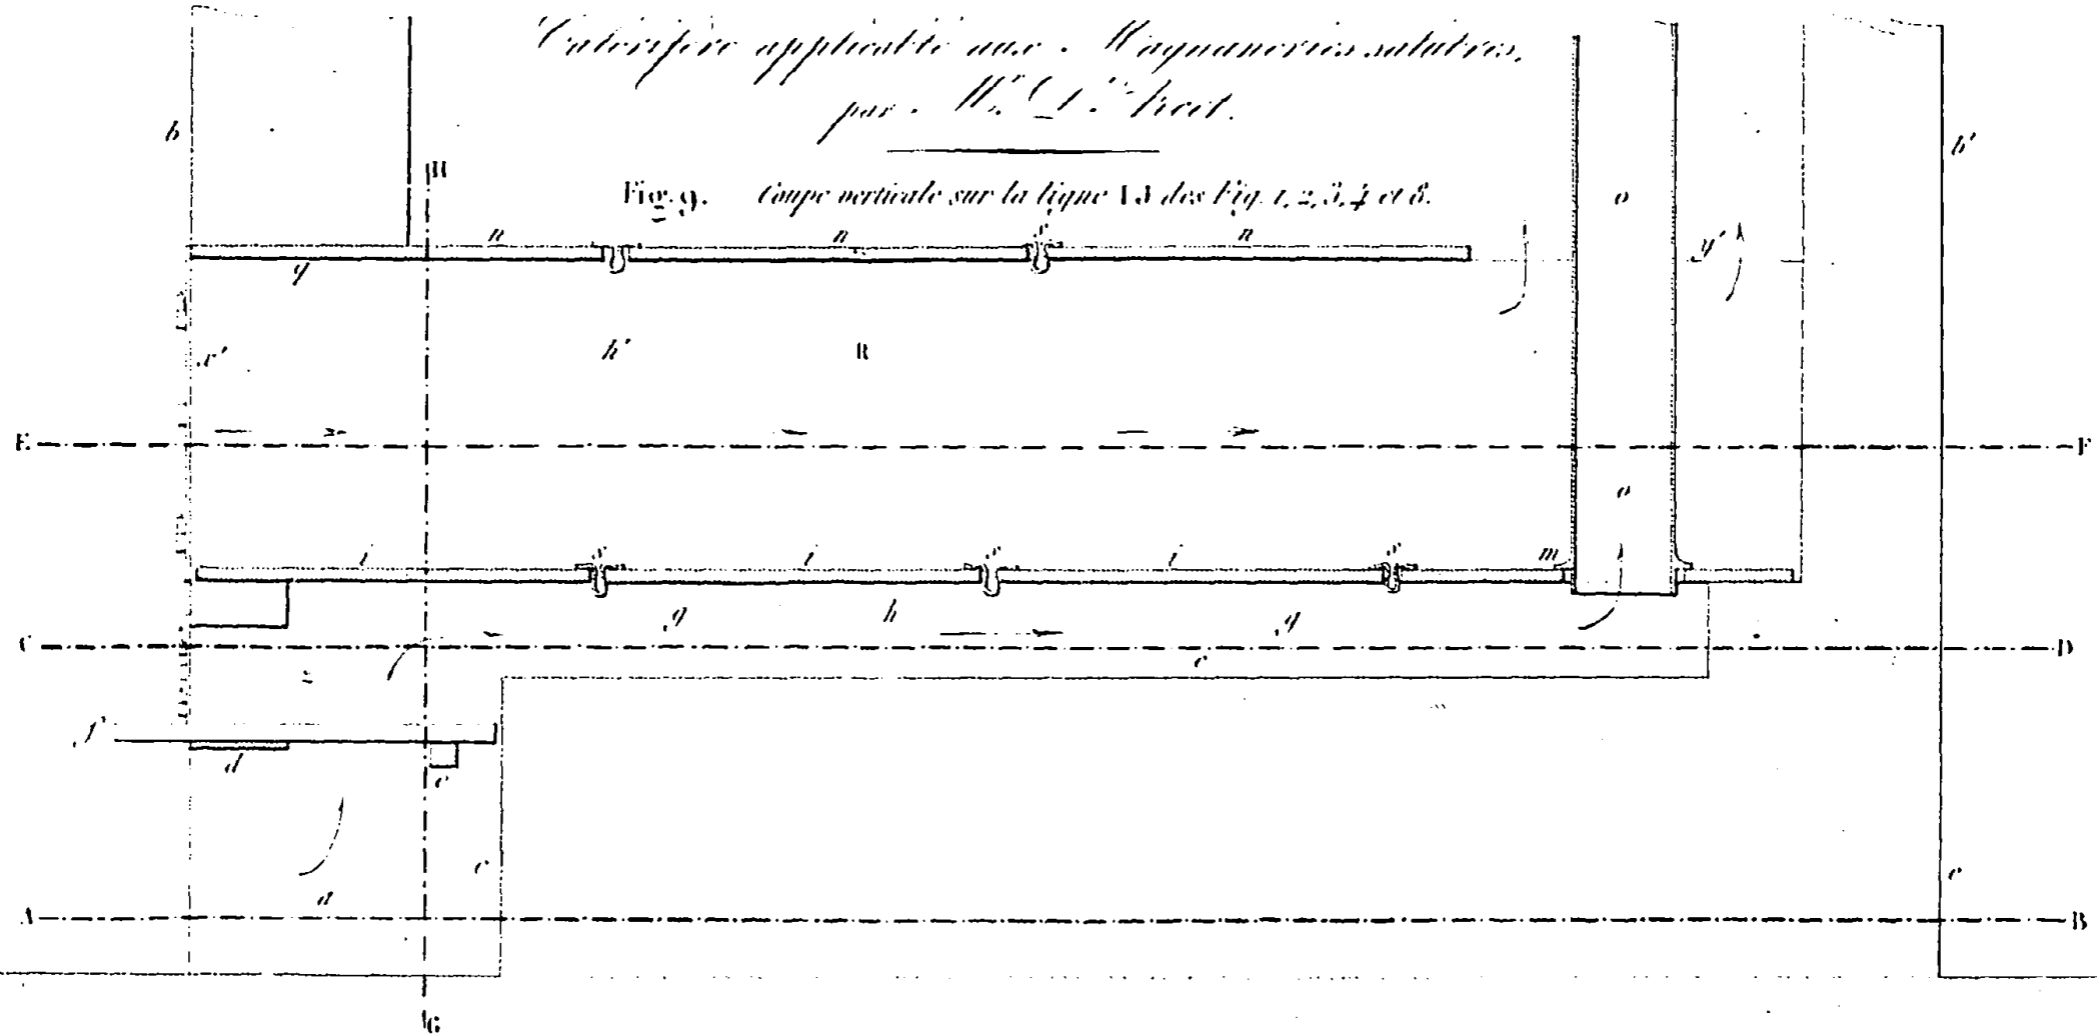 Calorifère applicable aux Magnaneries salubres,
par Mr
Fig. 9. Coupe verticale sur la ligne IJ des Fig. 1, 2, 3, 4 et 8.
b
b'
H
o
n
n
n
q
y'
x'
h'
R
E
F
o
i
s
i
s
i
s
m
g
h
g
C
D
z
c
f
d
e
c
c
a
A
B
G